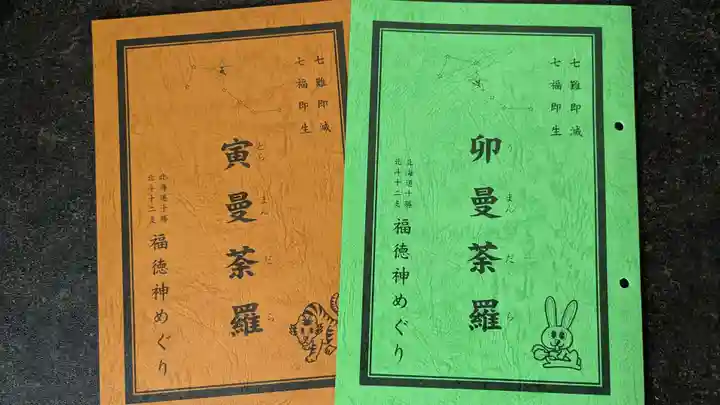 七難即滅
七福即生
寅曼荼羅
とらまんだら
北海道十勝
北斗十二支
福徳神めぐり
七難即滅
七福即生
卯曼荼羅
うまんだら
北海道十勝
北斗十二支
福徳神めぐり